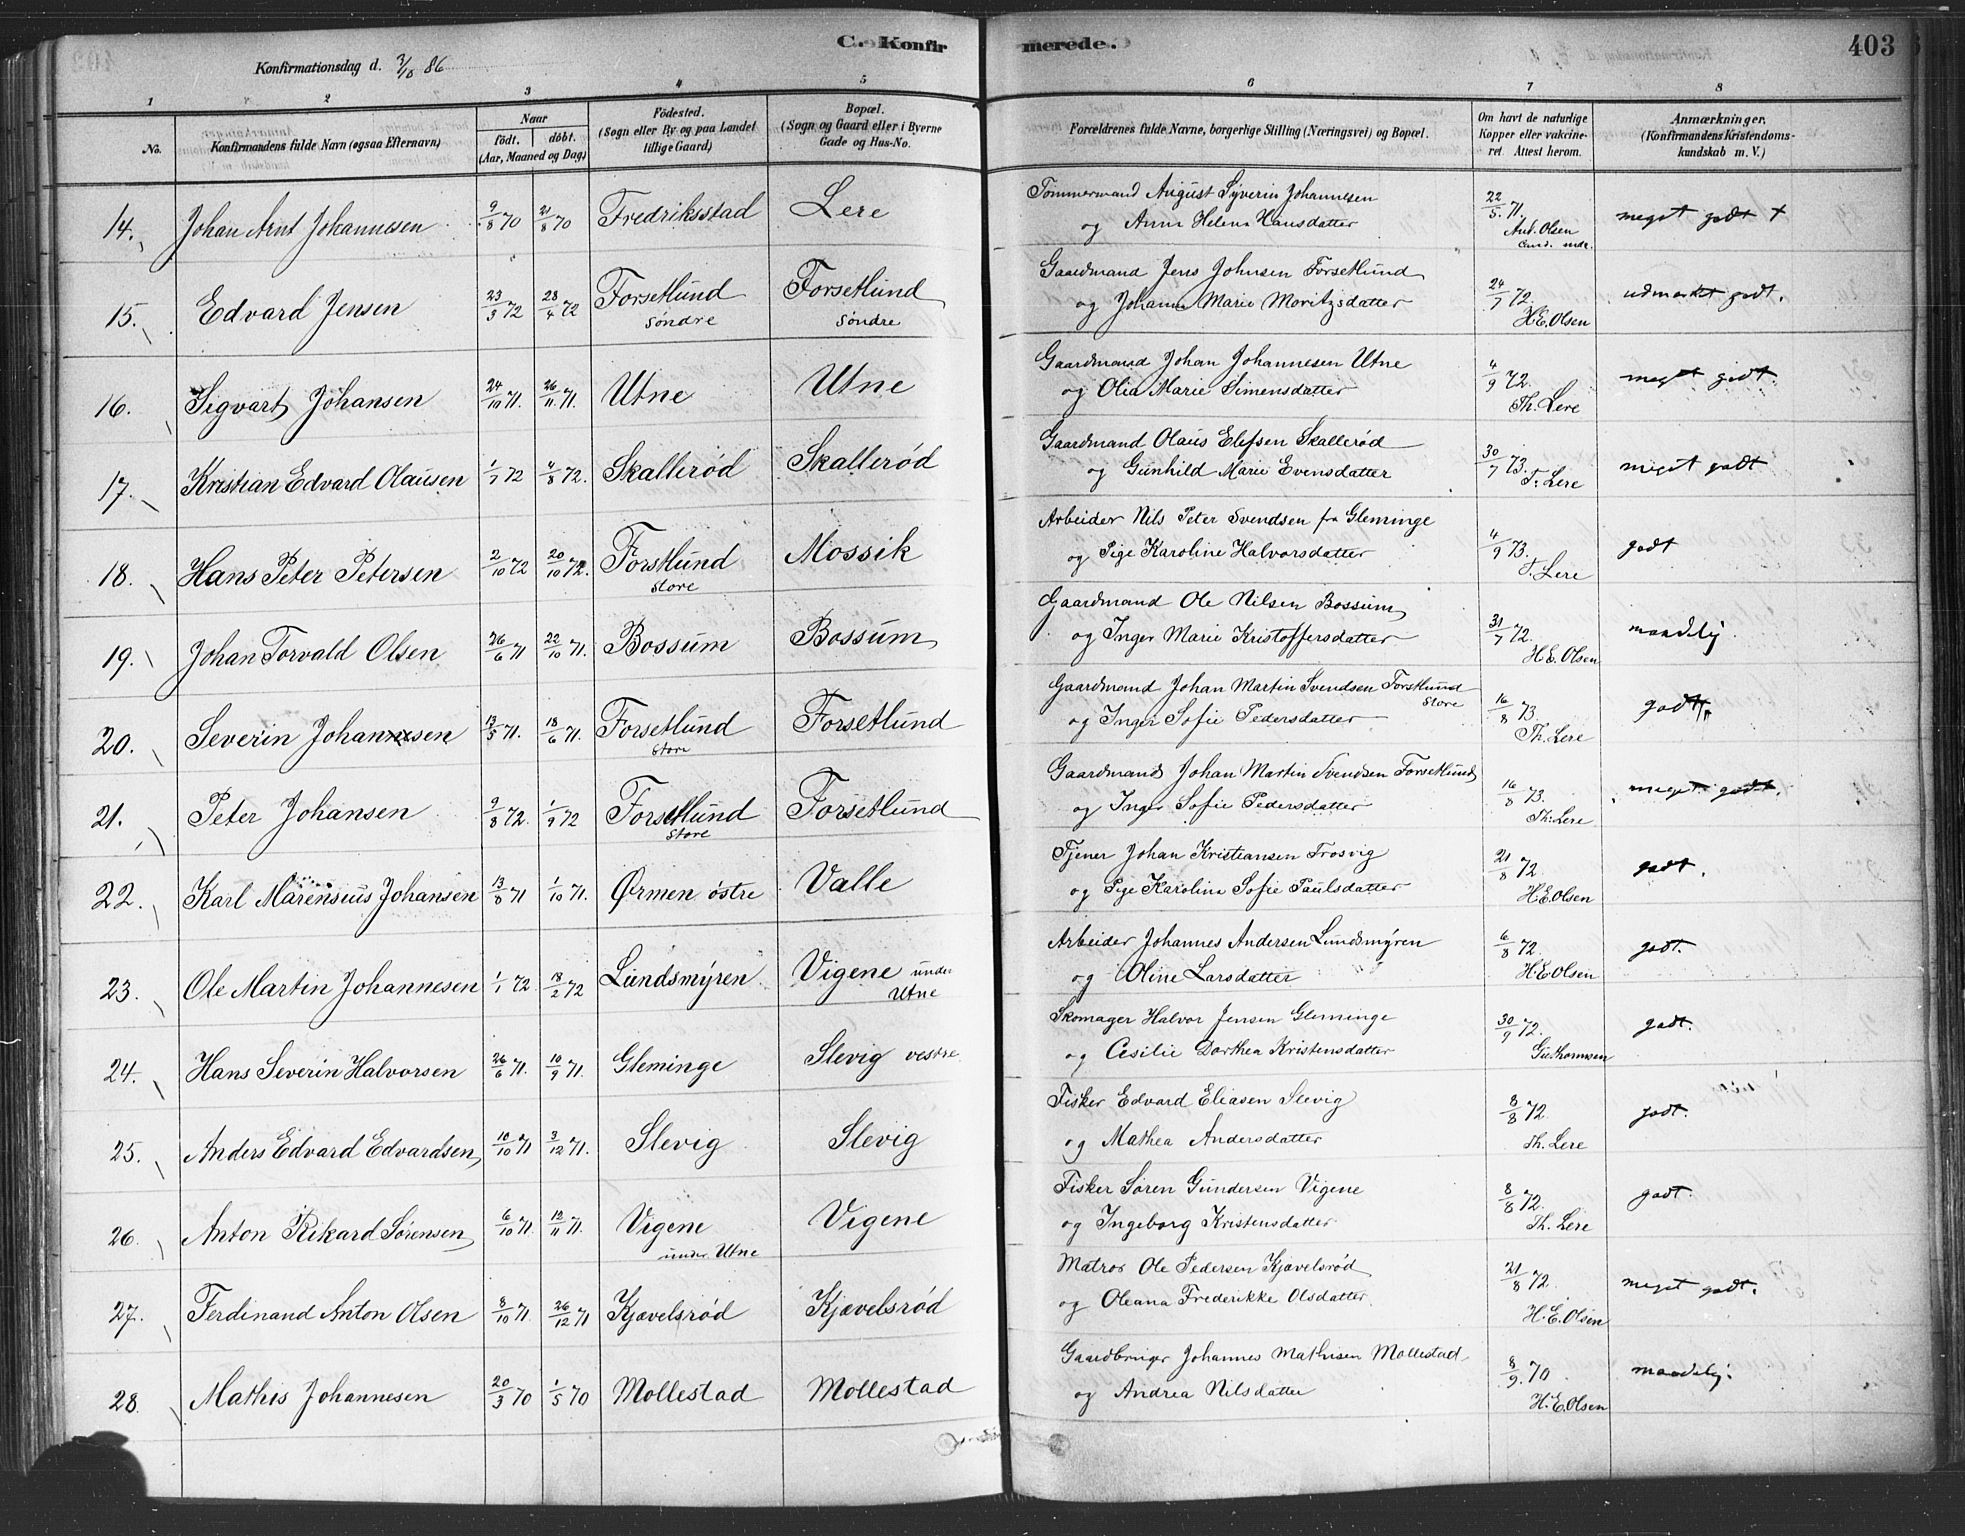 C. Konfirmerede. 403
Konfirmationsdag d. 3/10 86
1 2 3 4 5 6 7 8
No.
Konfirmandens fulde Navn (ogsaa Efternavn)
Naar
født. døbt.
(Aar, Maaned og Dag)
Fødested.
(Sogn eller By og paa Landet
tillige Gaard)
Bopæl.
(Sogn og Gaard eller i Byerne
Gade og Hus-No.
Forældrenes fulde Navne, borgerlige Stilling (Næringsvei) og Bopæl.
Om havt de naturlige
Kopper eller vakcine-
ret Attest herom.
Anmærkninger.
(Konfirmandens Kristendoms-
kundskab m. V.)
14. Johan Arnt Johannesen 9/8 70 21/8 70 Fredriksstad Lere Tømmermand August Syverin Johannesen 22/5 71. meget godt +
og Anna Helena Hansdatter And. Olsen
15. Edvard Jensen 23/3 72 28/4 72 Forsetlund Forsetlund Gaardmand Jens Johnsen Forsetlund 24/7 72. udmærket godt.
søndre søndre og Johanne Marie Moritzsdatter H.E. Olsen
16. Sigvart Johansen 24/10 71. 26/11 71. Utne Utne Gaardmand Johan Johannesen Utne 4/9 72. meget godt.
og Olia Marie Simensdatter Th. Lere
17. Kristian Edvard Olausen 1/7 72 4/8 72. Skallerød Skallerød Gaardmand Olaus Elefsen Skallerød 30/7 73. meget godt
og Gunhild Marie Evensdatter T. Lere
18. Hans Peter Petersen 2/10 72 20/10 72. Forstlund Mossik Arbeider Nils Peter Svendsen fra Gleminge 4/9 73. godt
store og Pige Karoline Halvorsdatter T. Lere
19. Johan Torvald Olsen 26/6 71 22/10 71. Bossum Bossum Gaardmand Ole Nilsen Bossum 31/7 72. maadelig.
og Inger Marie Kristoffersdatter H.E. Olsen
20. Severin Johannesen 13/5 71. 18/6 71. Forsetlund Forsetlund Gaardmand Johan Martin Svendsen Forstlund 16/8 73. godt.
store og Inger Sofie Pedersdatter store Th. Lere
21. Peter Johansen 9/8 72. 1/9 72 Forsetlund Forsetlund Gaardmand Johan Martin Svendsen Forsetlund 16/8 73. meget godt.
store og Inger Sofie Pedersdatter Th: Lere
22. Karl Marensius Johansen 13/8 71 1/10 71. Ørmen østre Valle Tjener Johan Kristiansen Trosvig 21/8 72. godt.
og Pige Karolina Sofie Paulsdatter H.E. Olsen
23. Ole Martin Johannesen 1/1 72 18/2 72 Lundsmyren Vigene under Arbeider Johannes Andersen Lundsmyren 6/8 72. godt.
Utne og Oline Larsdatter H.E. Olsen
24. Hans Severin Halvorsen 26/6 71. 10/9 71. Gleminge Slevig vestre Skomager Halvor Jensen Gleminge 30/9 72. godt.
og Cesilie Dorthea Kristensdatter Guthormsen
25. Anders Edvard Edvardsen 10/10 71 3/12 71. Slevig Slevig Fisker Edvard Eliasen Slevig 8/8 72. godt.
og Mathea Andersdatter Th. Lere
26. Anton Rikard Sørensen 6/10 71. 12/11 71. Vigene Vigene Fisker Søren Gundersen Vigene 8/8 72. godt.
under Utne og Ingeborg Kristensdatter Th. Lere
27. Ferdinand Anton Olsen 8/10 71. 26/12 71 Kjævelsrød Kjævelsrød Matros Ole Pedersen Kjævelsrød 21/8 72. meget godt.
og Oleana Frederikke Olsdatter H.E. Olsen
28. Mathis Johannesen 20/3 70 1/5 70 Mollestad Mollestad Gaardbruger Johannes Mathisen Mollestad 8/9 70 maadelig.
og Andrea Nilsdatter H.E. Olsen